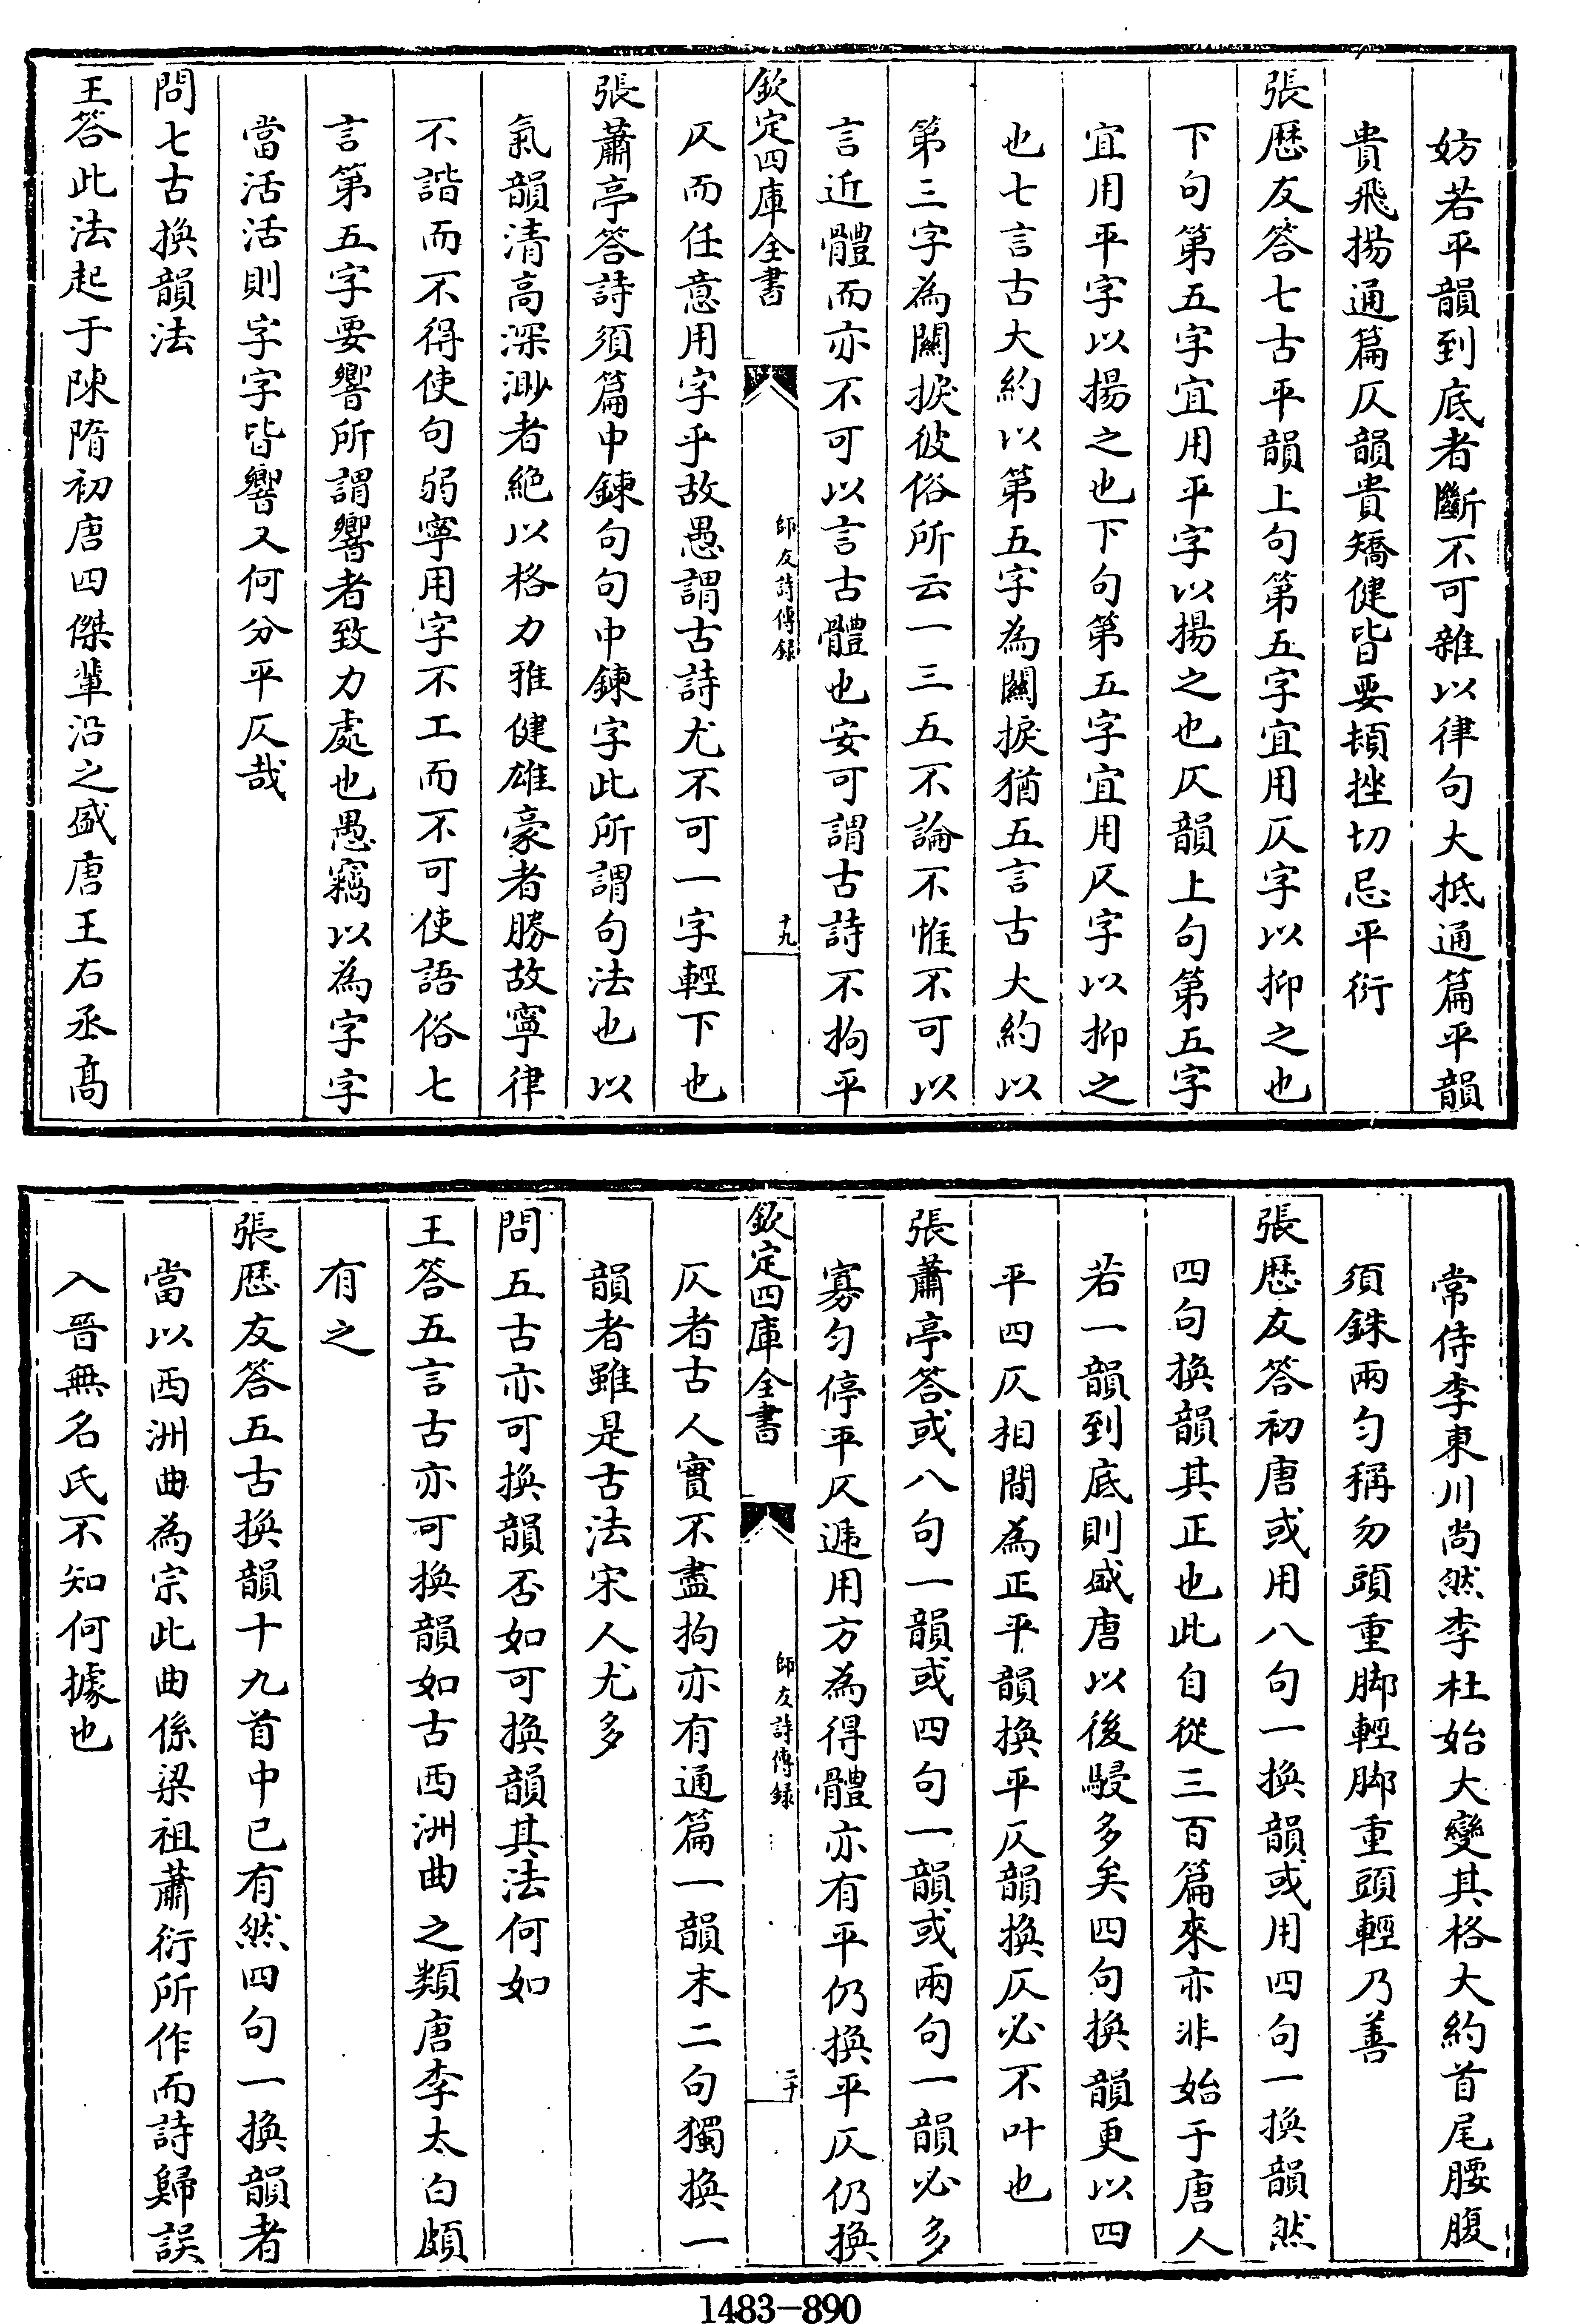 妨若平韻到底者斷不可雜以律句大抵通篇平韻
貴飛揚通篇仄韻貴矯健皆要頓挫切忌平衍
張歴友答七古平韻上句第五字宜用仄字以抑之也
下句第五字宜用平字以揚之也仄韻上句第五字
宜用平字以揚之也下句第五字宜用仄字以抑之
也七言古大約以第五字為關捩猶五言古大約以
第三字為關捩彼俗所云一三五不論不惟不可以
言近體而亦不可以言古體也安可謂古詩不拘平
欽定四庫全書
師友詩傳録
十九
仄而任意用字乎故愚謂古詩尤不可一字輕下也
張蕭亭答詩須篇中鍊句句中鍊字此所謂句法也以
氣韻清高深渺者絶以格力雅健雄豪者勝故寧律
不諧而不得使句弱寧用字不工而不可使語俗七
言第五字要響所謂響者致力處也愚竊以為字字
當活活則字字皆響又何分平仄哉
問七古換韻法
王答此法起于陳隋初唐四傑輩沿之盛唐王右丞高
常侍李東川尚然李杜始大變其格大約首尾腰腹
須銖兩勻稱勿頭重脚輕脚重頭輕乃善
張歴友答初唐或用八句一換韻或用四句一換韻然
四句換韻其正也此自從三百篇來亦非始于唐人
若一韻到底則盛唐以後駸多矣四句換韻更以四
平四仄相間為正平韻換平仄韻換仄必不叶也
張蕭亭答或八句一韻或四句一韻或兩句一韻必多
寡勻停平仄遞用方為得體亦有平仍換平仄仍換
欽定四庫全書
師友詩傳録
二十
仄者古人實不盡拘亦有通篇一韻末二句獨換一
韻者雖是古法宋人尤多
問五古亦可換韻否如可換韻其法何如
王答五言古亦可換韻如古西洲曲之類唐李太白頗
有之
張歴友答五古換韻十九首中已有然四句一換韻者
當以西洲曲為宗此曲係梁祖蕭衍所作而詩歸誤
入晉無名氏不知何據也
1483-890